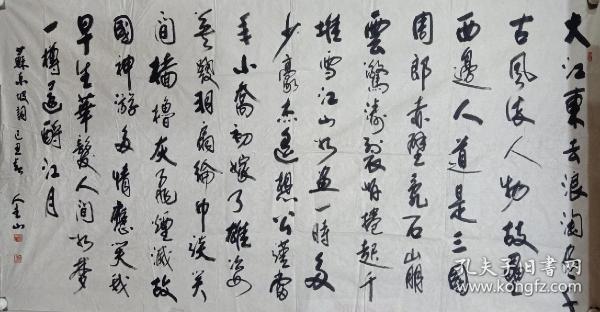 大江東去浪淘尽千
古風流人物故壘
西邊人道是三國
周郎赤壁亂石崩
雲驚濤裂岸捲起千
堆雪江山如畫一時多
少豪杰遙想公瑾當
年小喬初嫁了雄姿
英發羽扇綸巾談笑
間檣櫓灰飛煙滅故
國神游多情應笑我
早生華髮人间如夢
一樽還酹江月
蘇東坡詞 己丑春 金山
孔夫子旧书网
www.kongfz.com